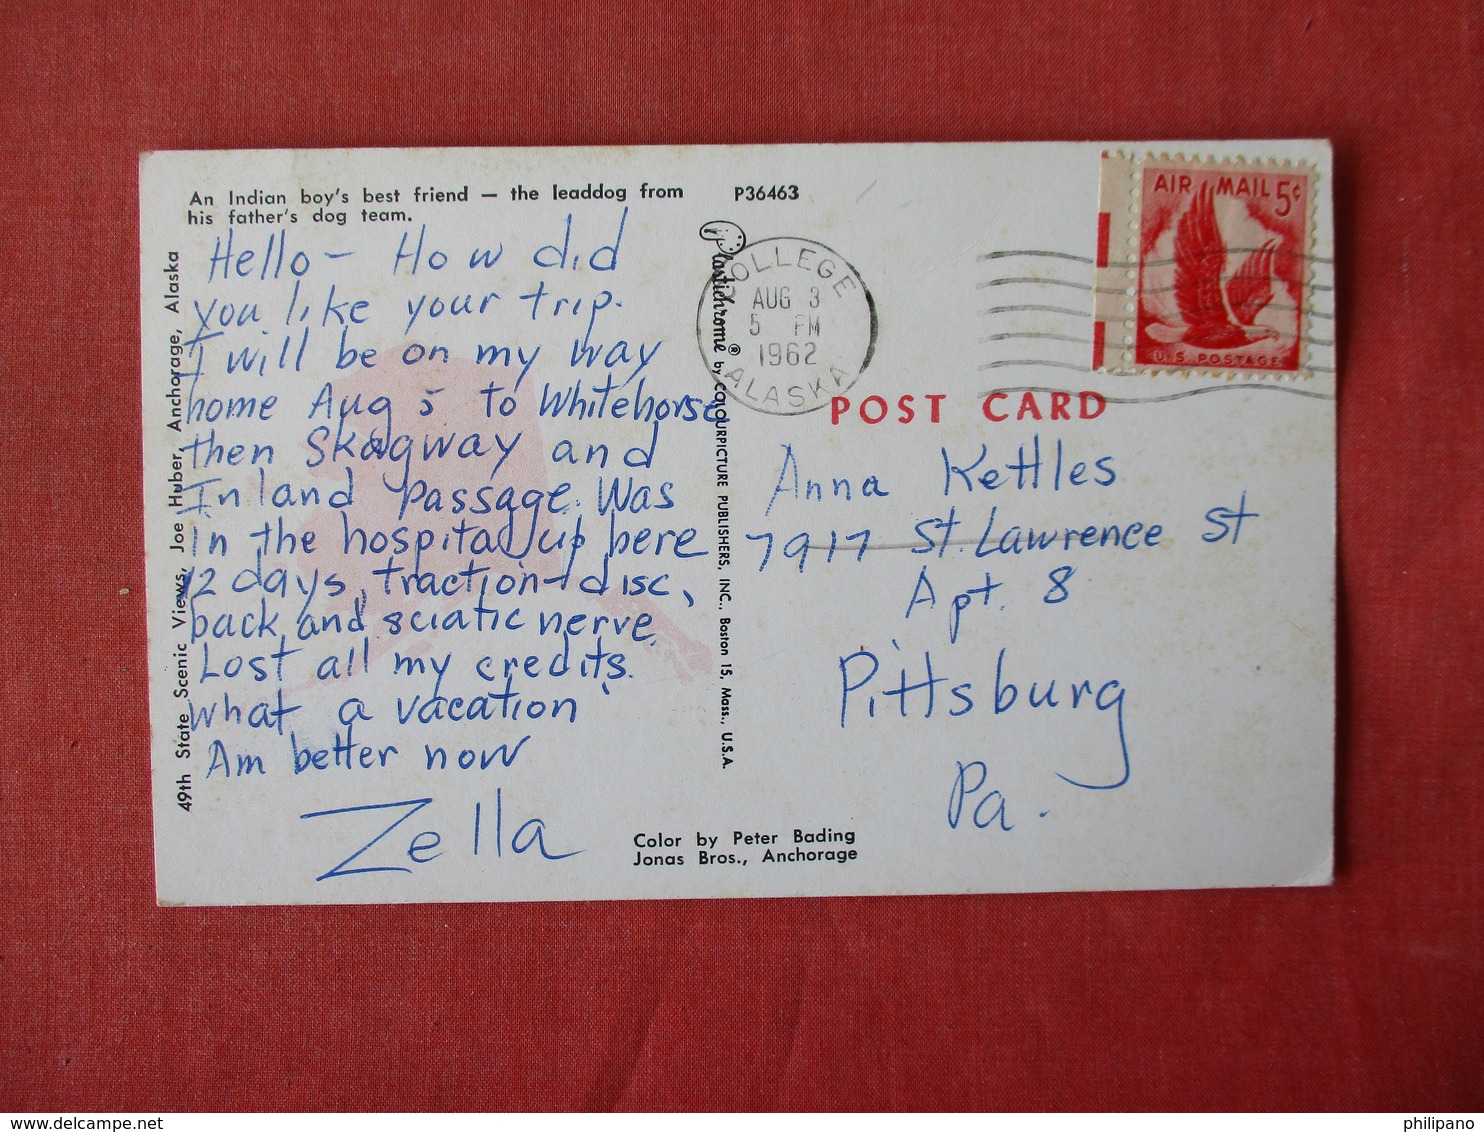 An Indian boy's best friend — the leaddog from
his father's dog team.
P36463
49th State Scenic Views, Joe Huber, Anchorage, Alaska
Hello - How did
you like your trip.
I will be on my way
home Aug 5 to Whitehorse
then Skagway and
Inland Passage. Was
in the hospital up here
12 days, traction - disc,
back, and sciatic nerve.
Lost all my credits.
What a vacation
Am better now
Zella
Plastichrome ® by COLOURPICTURE PUBLISHERS, INC., Boston 15, Mass., U.S.A.
COLLEGE
AUG 3
5 PM
1962
ALASKA
AIR MAIL 5¢
U.S. POSTAGE
POST CARD
Anna Kettles
7917 St. Lawrence St
Apt. 8
Pittsburg
Pa.
Color by Peter Bading
Jonas Bros., Anchorage
philipano